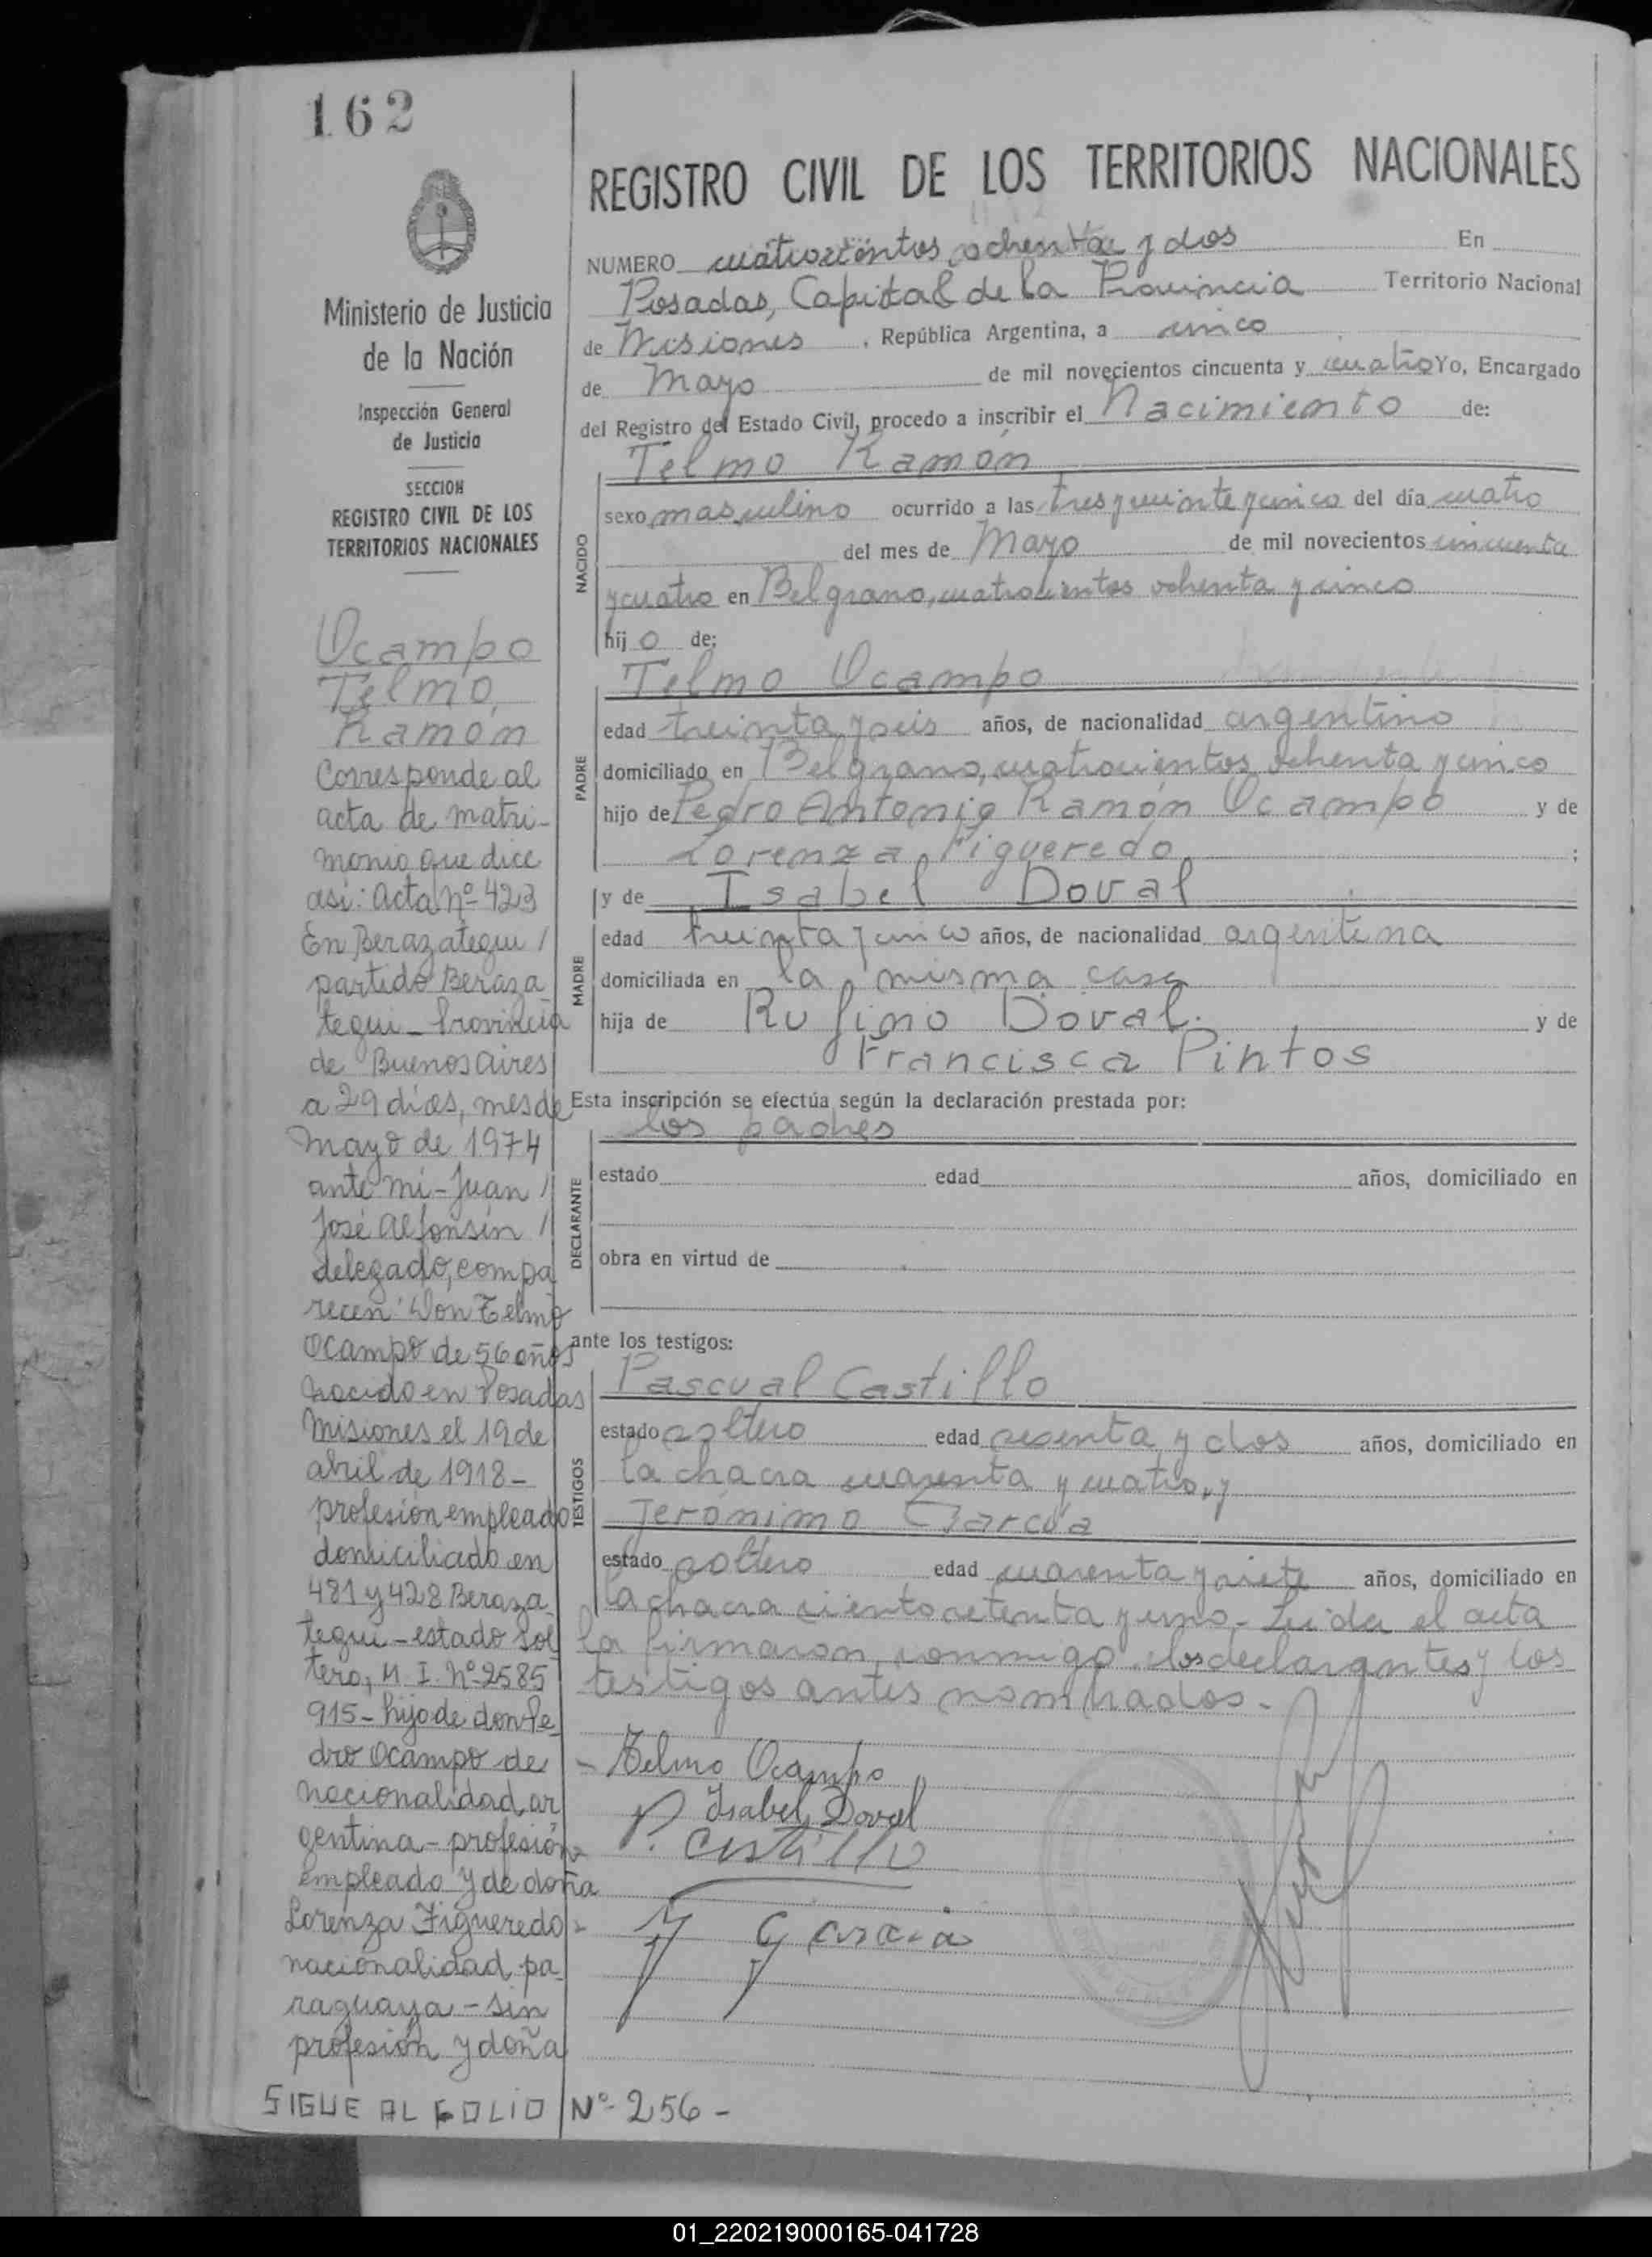 162
Ministerio de Justicia
de la Nación
Inspección General
de Justicia
SECCION
REGISTRO CIVIL DE LOS
TERRITORIOS NACIONALES
Ocampo
Telmo,
Ramón
Corresponde al
acta de matri-
monio que dice
asi: Acta Nº 423
En Berazategui /
partido Beraza
tegui - Provincia
de Buenos Aires
a 29 días, mes de
Mayo de 1974
ante mi - Juan /
José Alfonsín /
delegado, compa
recen: Don Telmo
Ocampo de 56 años
nacido en Posadas
Misiones el 19 de
abril de 1918 -
profesión empleado
domiciliado en
481 y 428 Beraza
tegui - estado sol
tero, M. I. Nº 2585
915 - hijo de don Pe
dro Ocampo de
nacionalidad ar
gentina - profesión
empleado y de doña
Lorenza Figueredo -
nacionalidad pa
raguaya - sin
profesión y doña
SIGUE AL FOLIO Nº 256 -
REGISTRO CIVIL DE LOS TERRITORIOS NACIONALES
NUMERO cuatrocientos ochenta y dos En
Posadas, Capital de la Provincia Territorio Nacional
de Misiones, República Argentina, a cinco
de Mayo de mil novecientos cincuenta y cuatro Yo, Encargado
del Registro del Estado Civil, procedo a inscribir el Nacimiento de:
Telmo Ramón
NACIDO
sexo masculino ocurrido a las tres y veinte y cinco del día cuatro
del mes de Mayo de mil novecientos cincuenta
y cuatro en Belgrano, cuatrocientos ochenta y cinco
hij o de:
Telmo Ocampo
PADRE
edad treinta y seis años, de nacionalidad argentino
domiciliado en Belgrano, cuatrocientos ochenta y cinco
hijo de Pedro Antonio Ramón Ocampo y de
Lorenza Figueredo ;
y de Isabel Doval
MADRE
edad treinta y cinco años, de nacionalidad argentina
domiciliada en la misma casa
hija de Rufino Doval. y de
Francisca Pintos
Esta inscripción se efectúa según la declaración prestada por:
los padres
DECLARANTE
estado edad años, domiciliado en
obra en virtud de
ante los testigos:
Pascual Castillo
TESTIGOS
estado soltero edad sesenta y dos años, domiciliado en
la chacra cuarenta y cuatro, y
Jerónimo García
estado soltero edad cuarenta y siete años, domiciliado en
la chacra ciento setenta y uno - Leída el acta
la firmaron conmigo los declarantes y los
testigos antes nombrados -
- Telmo Ocampo
Isabel Doval
P. Castillo
J Garcia
01_220219000165-041728